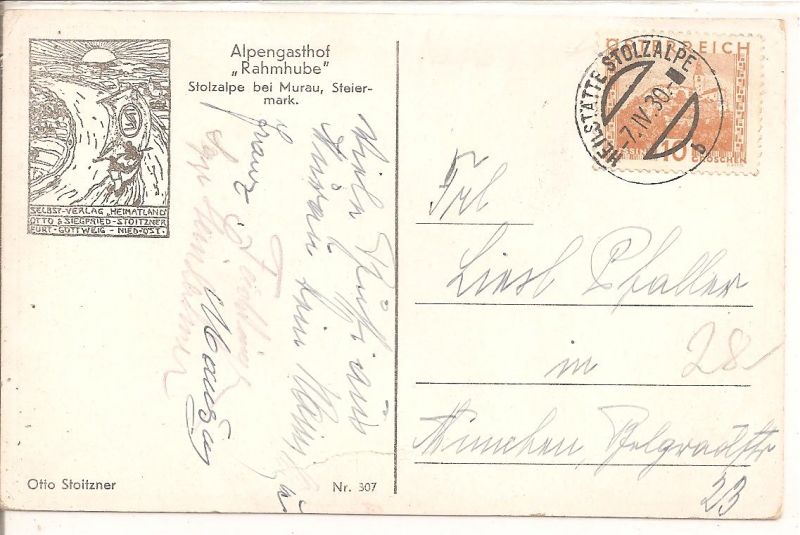 Alpengasthof
„Rahmhube"
Stolzalpe bei Murau, Steier-
mark.
SELBST-VERLAG „HEIMATLAND"
OTTO & SIEGFRIED STOITZNER
FURT-GÖTTWEIG - NIED-ÖST.
Viele Grüße aus
Murau
Franz
Otto Stoitzner
Nr. 307
ÖSTERREICH
10
GROSCHEN
HEILSTÄTTE STOLZALPE
-7.IV.30.
b
Frl
Liesl Pfaller
in
28
München, Belgradstr
23